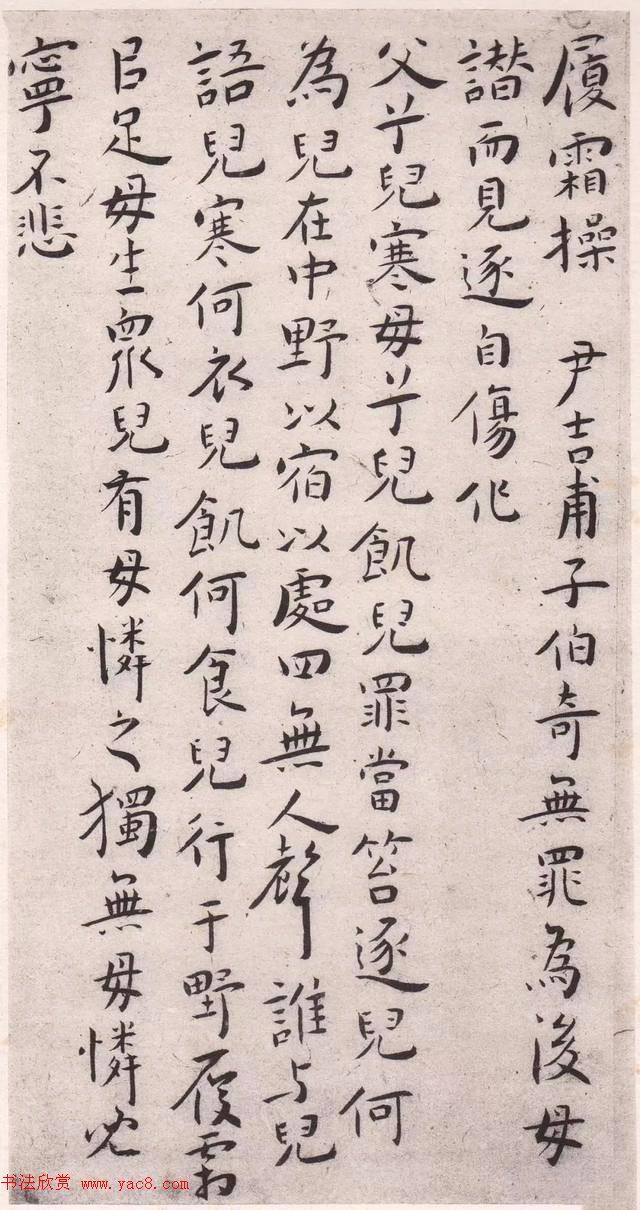 履霜操 尹吉甫子伯奇無罪為後母
譖而見逐自傷作
父兮兒寒母兮兒飢兒罪當笞逐兒何
為兒在中野以宿以處四無人聲誰与兒
語兒寒何衣兒飢何食兒行于野履霜
以足母生衆兒有母憐之獨無母憐兒
寧不悲
书法欣赏 www.yac8.com